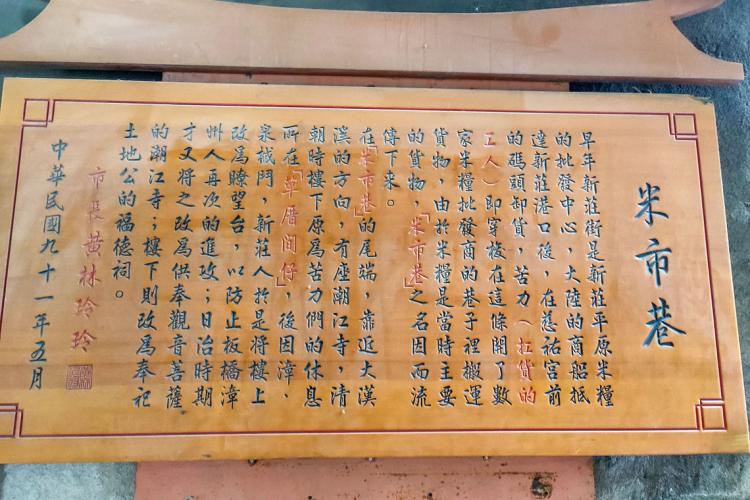 米市巷
早年新莊街是新莊平原米糧
的批發中心，大陸的商船抵
達新莊港口後，在慈祐宮前
的碼頭卸貨，苦力（扛貨的
工人）即穿梭在這條開了數
家米糧批發商的巷子裡搬運
貨物，由於米糧是當時主要
的貨物，「米市巷」之名因而流
傳下來。
在「米市巷」的尾端，靠近大漢
溪的方向，有座潮江寺，清
朝時樓下原為苦力們的休息
所在「單厝間仔」，後因漳、
泉械鬥，新莊人於是將樓上
改為瞭望台，以防止板橋漳
州人再次的進攻；日治時期
才又將之改為供奉觀音菩薩
的潮江寺，樓下則改為奉祀
土地公的福德祠。
市長黃林玲玲
中華民國九十一年五月